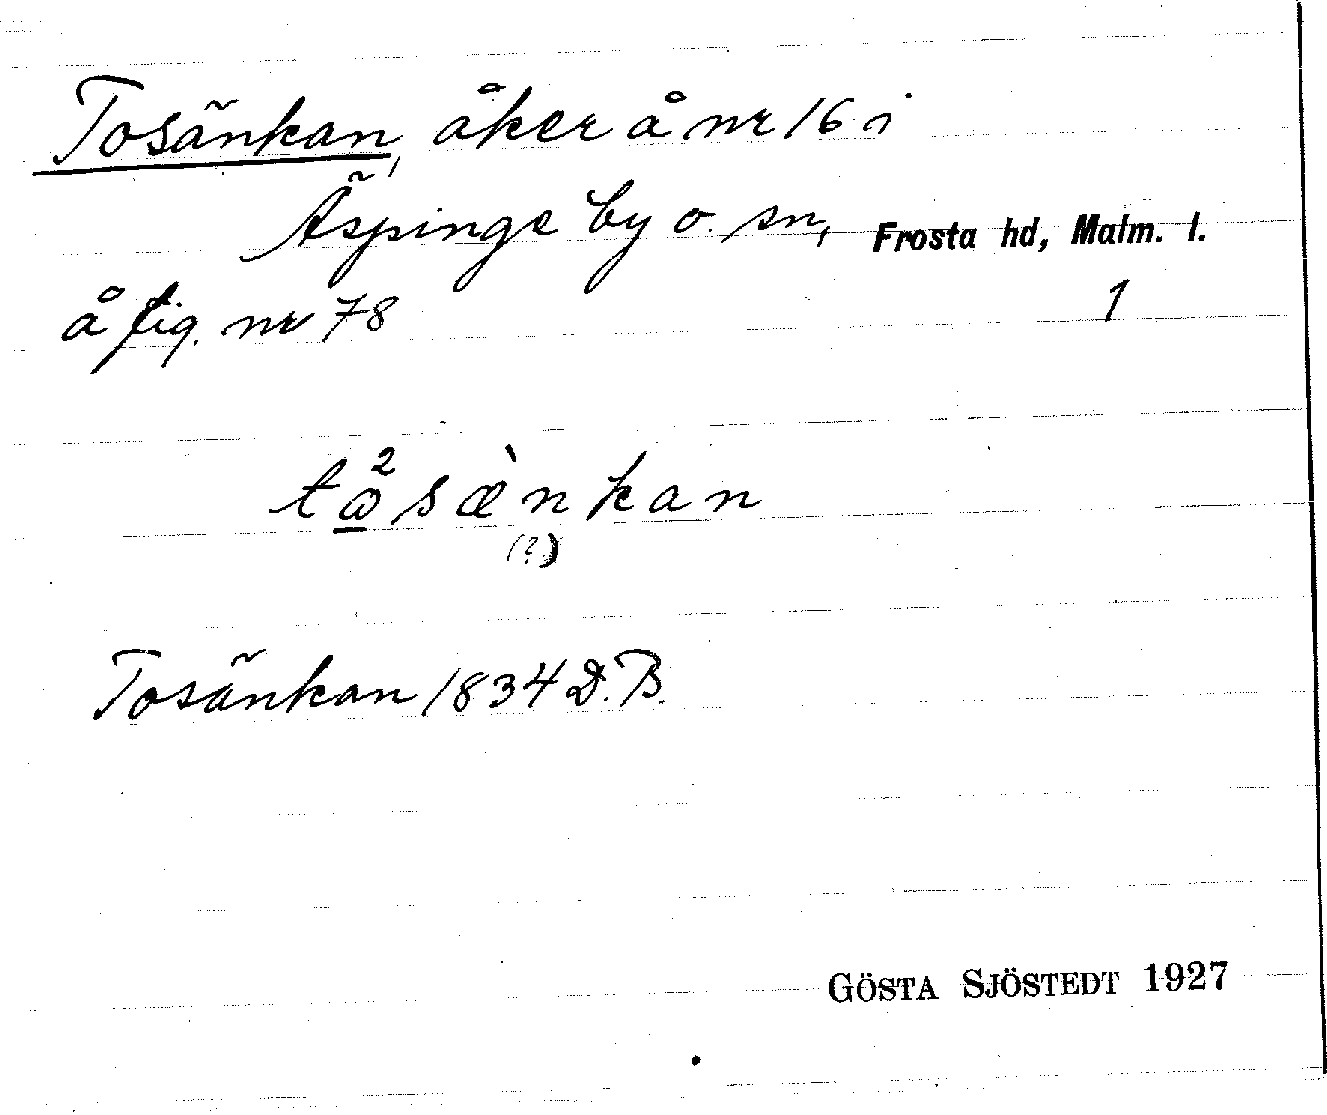 Tosänkan, åker å nr 16 i
Äspinge by o. sn, Frosta hd, Malm. l.
å fig. nr 78 1
tω̲²sæ̀nkan
(?)
Tosänkan 1834 D.B.
GÖSTA SJÖSTEDT 1927